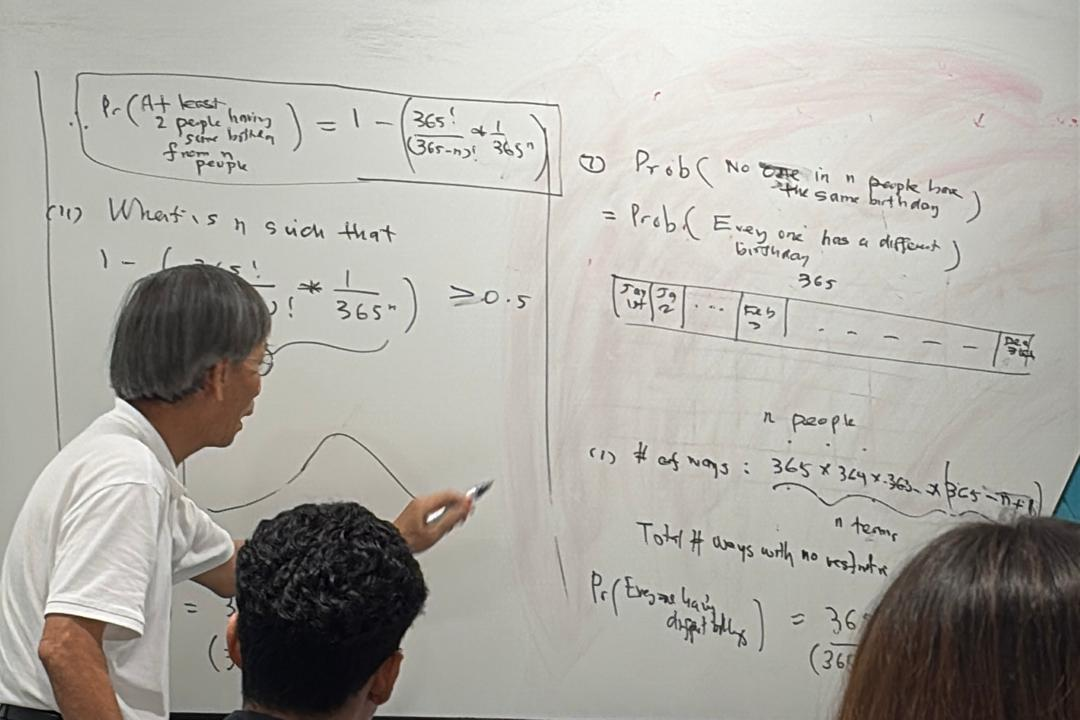 ∴ Pr(At least
2 people having
same bothday
from n
people) = 1 - (365!/(365-n)! * 1/365ⁿ)
(ii) What is n such that
1 - ( 365! ! * 1/365ⁿ) ≥ 0.5
=
(3
② Prob( No one in n people have
the same birthday )
= Prob( Every one has a different
birthday )
365
Jan 1st Ja 2 ... Feb - - - - - Dec 31st
n people
(i) # of ways : 365 × 364 × 363 - × (365 - n+1)
n terms
Total # ways with no
Pr(Everyone having ) = 36
(36